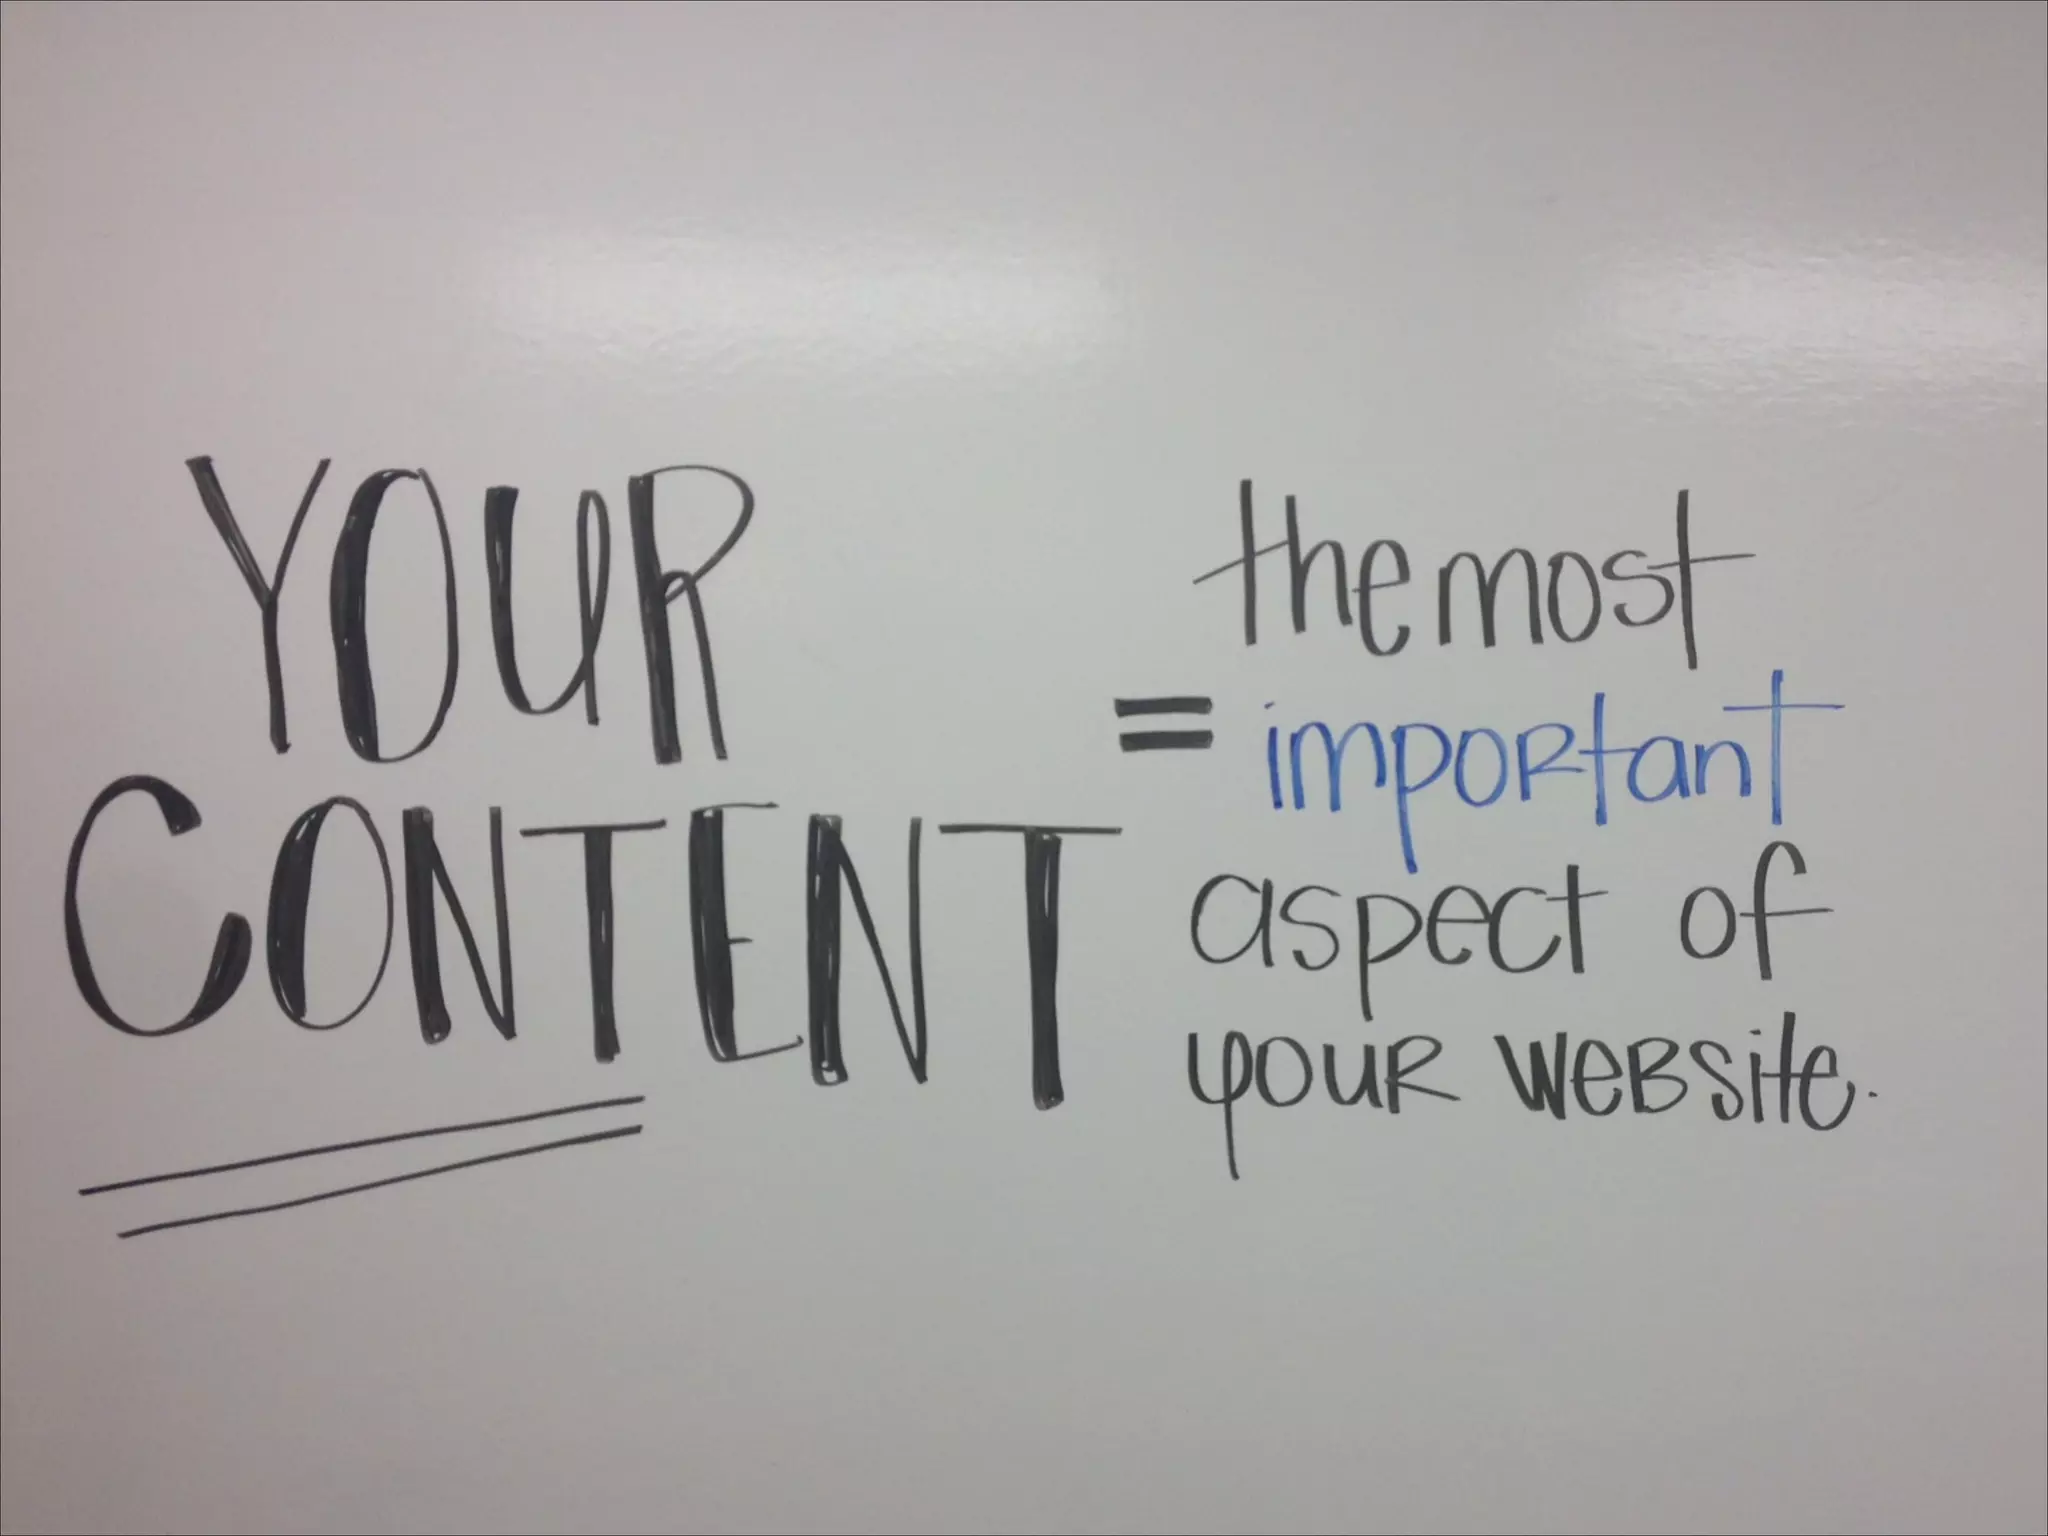 YOUR
CONTENT
=
the most
important
aspect of
your website.